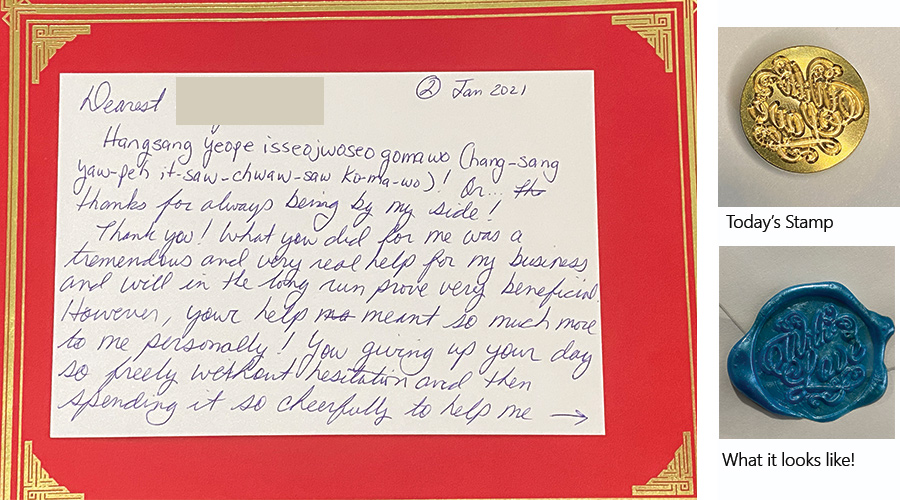 Dearest
② Jan 2021
Hangsang yeope isseojwoseo gomawo (hang-sang
yaw-peh it-saw-chwaw-saw ko-ma-wo)! Or...
thanks for always being by my side!
Thank you! What you did for me was a
tremendous and very real help for my business
and will in the long run prove very beneficial.
However, your help meant so much more
to me personally! You giving up your day
so freely without hesitation and then
spending it so cheerfully to help me →
Thank
You
Today's Stamp
Thank
You
What it looks like!